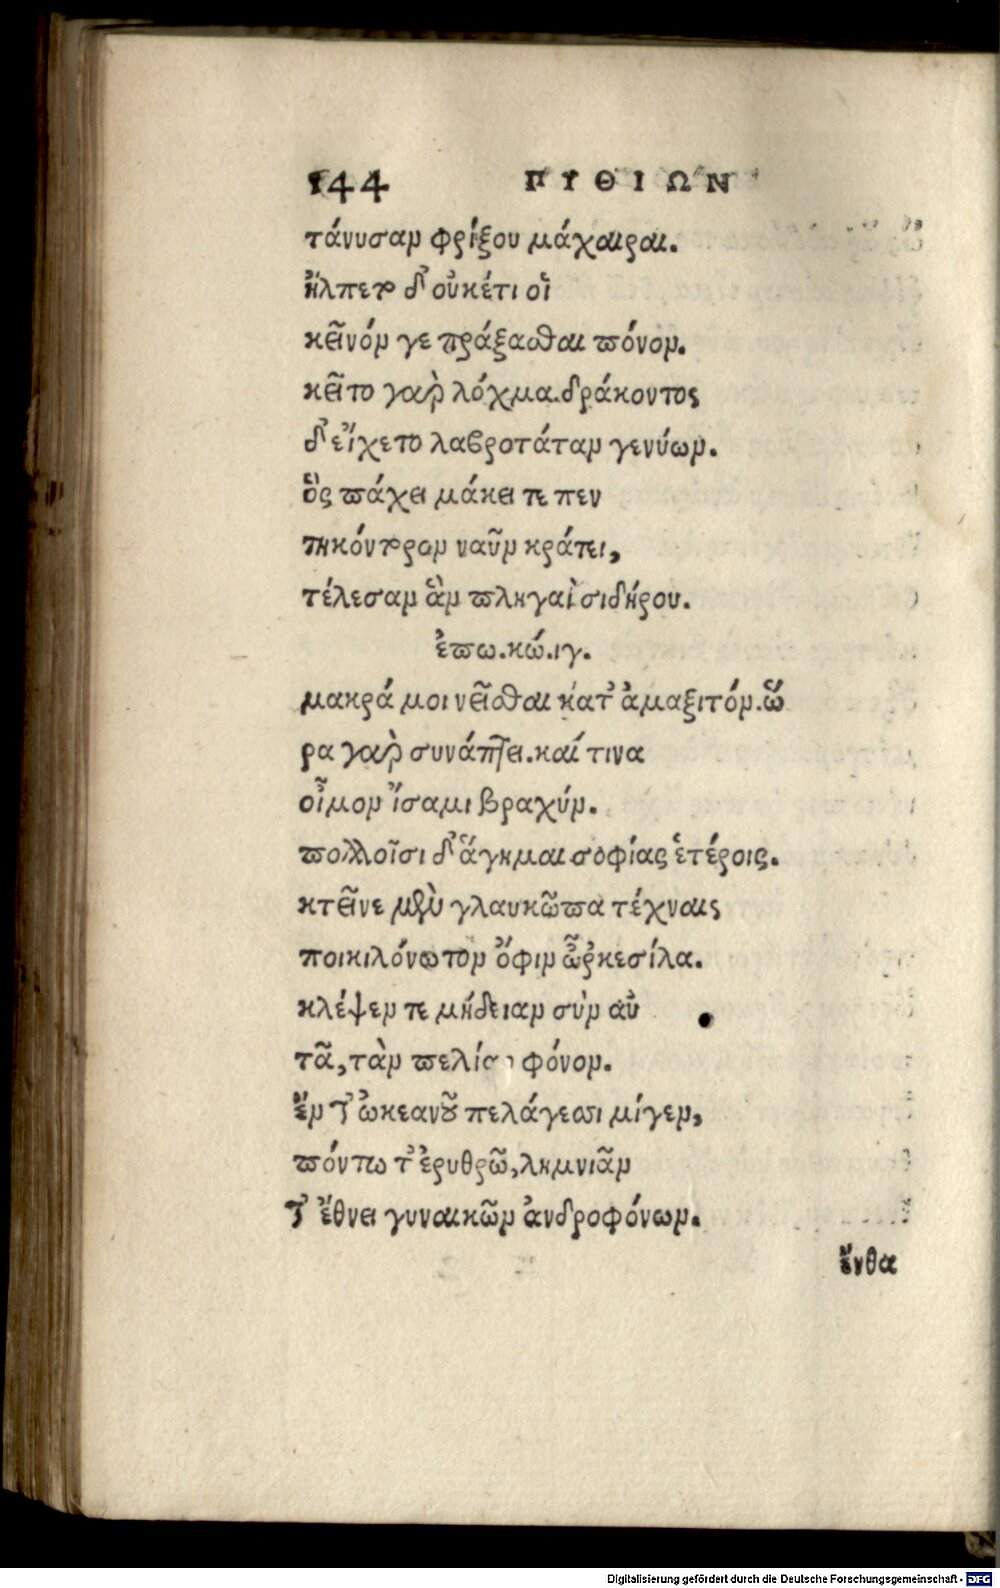 144 ΠΥΘΙΩΝ
τάνυσαν φρίξου μάχαιραι.
ἤλπετο δ' οὐκέτι οἷ
κεῖνόν γε πράξασθαι πόνον.
κεῖτο γὰρ λόχμα. δράκοντος
δ' εἴχετο λαβροτάταν γενύων.
ὃς πάχει μάκει τε πεν
τηκόντορον ναῦν κράτει,
τέλεσαν ἃν πληγαὶ σιδήρου.
ἐπω. κώ. ιγ.
μακρά μοι νεῖσθαι κατ' ἀμαξιτόν. ὥ
ρα γὰρ συνάπτει. καί τινα
οἶμον ἴσαμι βραχύν.
πολλοῖσι δ' ἅγημαι σοφίας ἑτέροις.
κτεῖνε μὲν γλαυκῶπα τέχναις
ποικιλόνωτον ὄφιν ὦρκεσίλα.
κλέψεν τε μήδειαν σὺν αὐ
τᾶ, τὰν πελίαο φόνον.
ἔν τ' ὠκεανοῦ πελάγεσσι μίγεν,
πόντω τ' ἐρυθρῶ, λημνιᾶν
τ' ἔθνει γυναικῶν ἀνδροφόνων.
ἔνθα
Digitalisierung gefördert durch die Deutsche Forschungsgemeinschaft - DFG